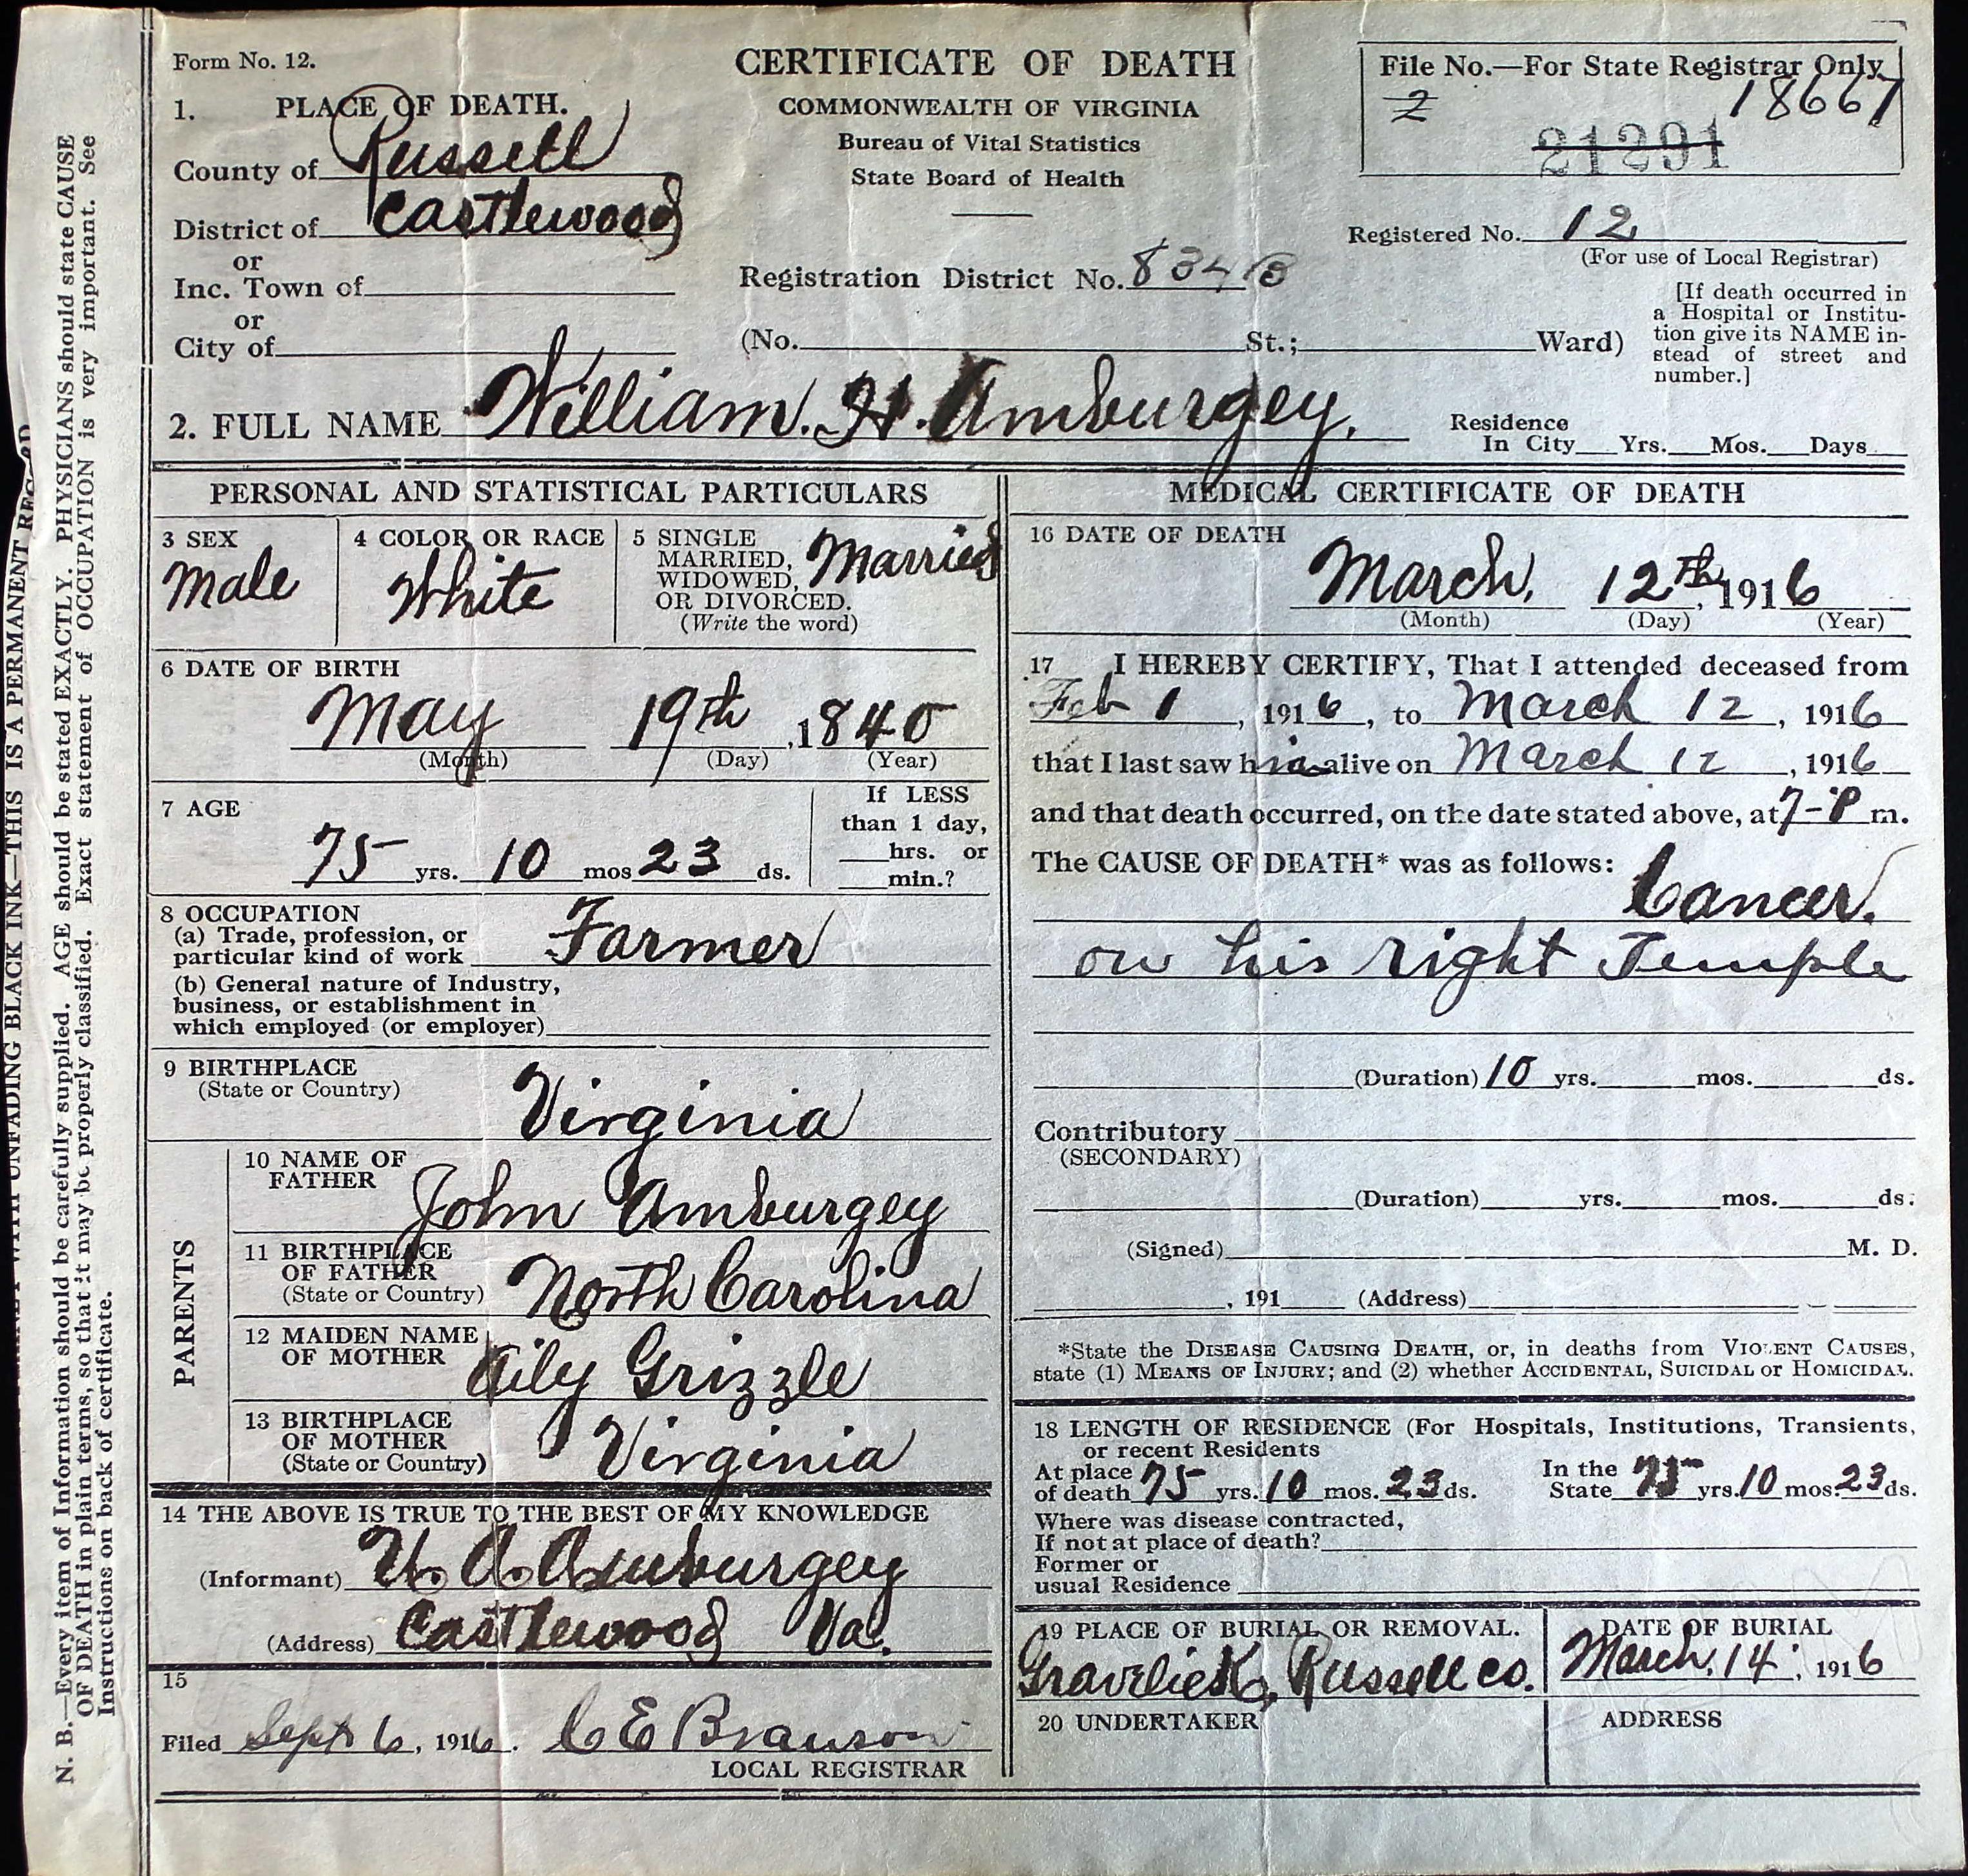 Form No. 12.
CERTIFICATE OF DEATH
COMMONWEALTH OF VIRGINIA
Bureau of Vital Statistics
State Board of Health
File No.—For State Registrar Only
2 18667
21291
1. PLACE OF DEATH.
County of Russell
District of Castlewood
or
Inc. Town of
or
City of
Registration District No. 834 B
Registered No. 12
(For use of Local Registrar)
(No. St.; Ward)
[If death occurred in
a Hospital or Institu-
tion give its NAME in-
stead of street and
number.]
2. FULL NAME William. H. Amburgey.
Residence
In City Yrs. Mos. Days
PERSONAL AND STATISTICAL PARTICULARS
3 SEX
Male
4 COLOR OR RACE
White
5 SINGLE
MARRIED,
WIDOWED,
OR DIVORCED.
(Write the word)
Married
6 DATE OF BIRTH
May 19th, 1840
(Month) (Day) (Year)
7 AGE
75 yrs. 10 mos 23 ds.
If LESS
than 1 day,
hrs. or
min.?
8 OCCUPATION
(a) Trade, profession, or
particular kind of work Farmer
(b) General nature of Industry,
business, or establishment in
which employed (or employer)
9 BIRTHPLACE
(State or Country)
Virginia
PARENTS
10 NAME OF
FATHER
John Amburgey
11 BIRTHPLACE
OF FATHER
(State or Country) North Carolina
12 MAIDEN NAME
OF MOTHER
Grizzle
13 BIRTHPLACE
OF MOTHER
(State or Country) Virginia
14 THE ABOVE IS TRUE TO THE BEST OF MY KNOWLEDGE
(Informant) Amburgey
(Address) Castlewood Va.
15
Filed Sept 6, 1916. C E Branson
LOCAL REGISTRAR
MEDICAL CERTIFICATE OF DEATH
16 DATE OF DEATH
March, 12th, 1916
(Month) (Day) (Year)
17 I HEREBY CERTIFY, That I attended deceased from
Feb 1, 1916, to March 12, 1916
that I last saw him alive on March 12, 1916
and that death occurred, on the date stated above, at 7-P m.
The CAUSE OF DEATH* was as follows:
Cancer.
on his right Temple
(Duration) 10 yrs. mos. ds.
Contributory
(SECONDARY)
(Duration) yrs. mos. ds.
(Signed) M. D.
, 191 (Address)
*State the DISEASE CAUSING DEATH, or, in deaths from VIOLENT CAUSES,
state (1) MEANS OF INJURY; and (2) whether ACCIDENTAL, SUICIDAL or HOMICIDAL.
18 LENGTH OF RESIDENCE (For Hospitals, Institutions, Transients,
or recent Residents
At place
of death 75 yrs. 10 mos. 23 ds.
In the
State 75 yrs. 10 mos. 23 ds.
Where was disease contracted,
If not at place of death?
Former or
usual Residence
19 PLACE OF BURIAL OR REMOVAL.
Gravelick, Russell co.
DATE OF BURIAL
March, 14, 1916
20 UNDERTAKER
ADDRESS
N. B.—Every item of Information should be carefully supplied. AGE should be stated EXACTLY. PHYSICIANS should state CAUSE
OF DEATH in plain terms, so that it may be properly classified. Exact statement of OCCUPATION is very important. See
Instructions on back of certificate.
WITH UNFADING BLACK INK—THIS IS A PERMANENT RECORD